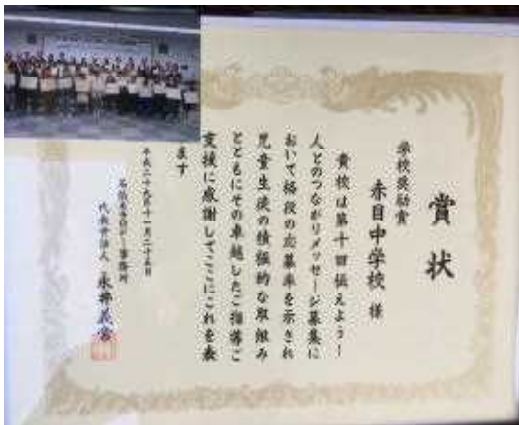 賞状
学校奨励賞
赤目中学校 様
貴校は第十回伝えよう!
人とのつながりメッセージ募集に
おいて格段の応募率を示され
児童生徒の積極的な取組み
とともにその卓越したご指導ご
支援に感謝してここにこれを表
ます
平成二十九年十一月二十五日